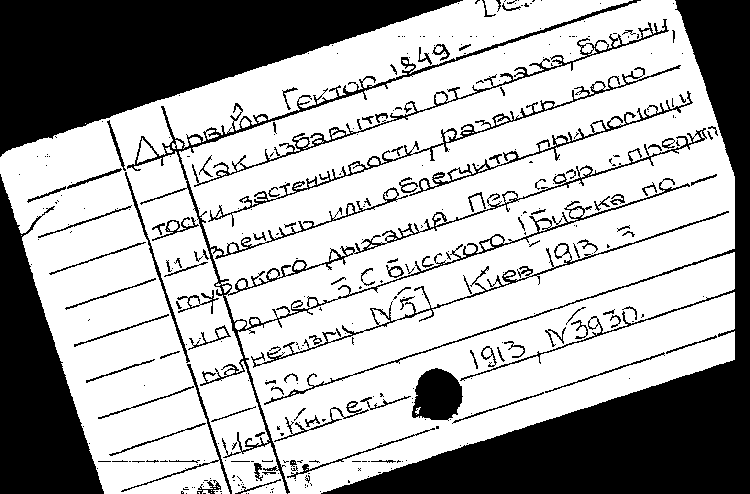 Дюрвилль, Гектор, 1849 -
Как избавиться от страха, боязни,
тоски, застенчивости, развить волю
и излечить или облегчить при помощи
глубокого дыхания. Пер. с фр. с предил
и под ред. З.С. Бисского. [Биб-ка по
магнетизму N5]. Киев, 1913.
32 с.
Ист.: Кн. лет.: 1913, N3930.